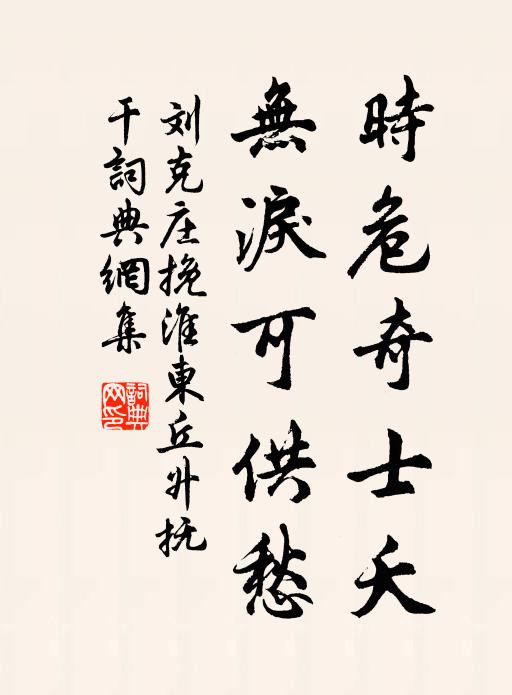 時危奇士夭
無淚可供愁
刘克庄挽淮東丘升抚
于詞典網集
詞典网印